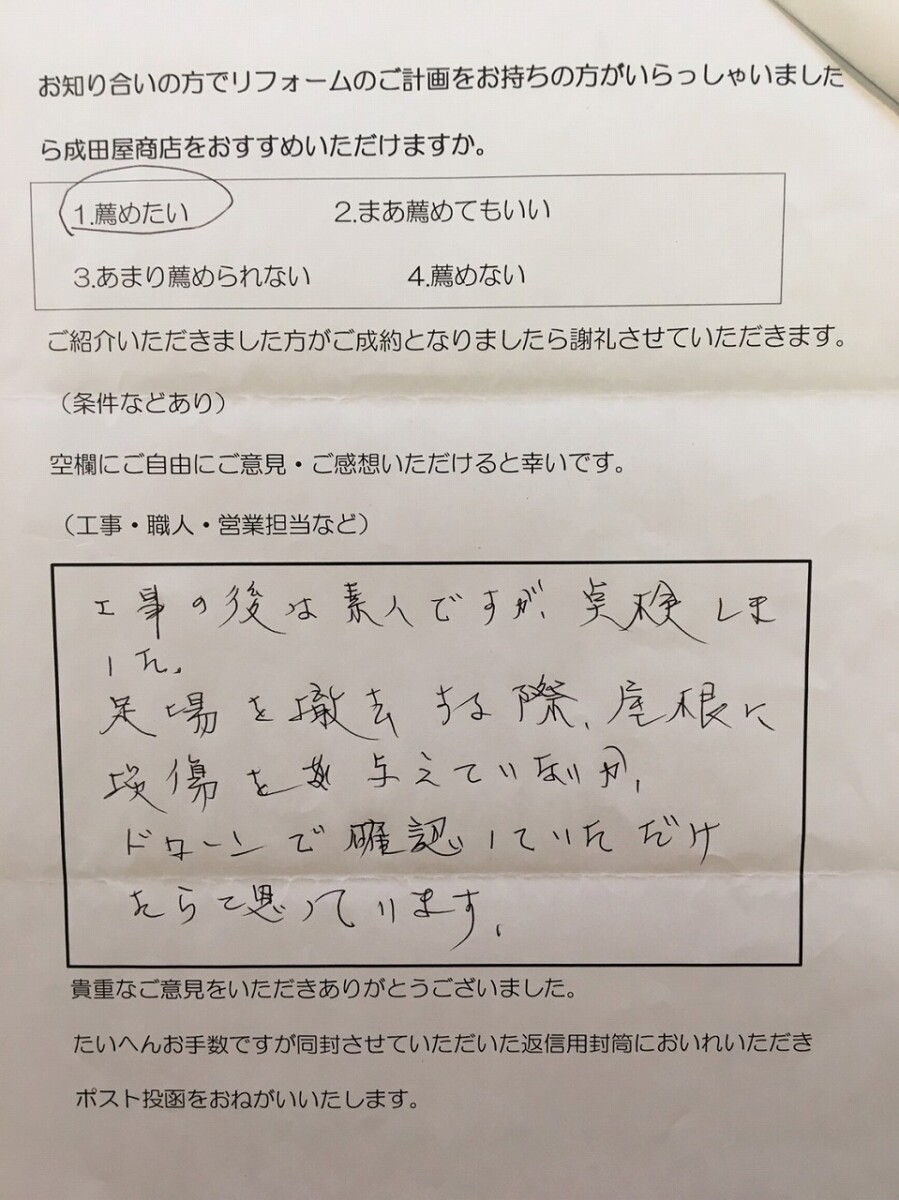 お知り合いの方でリフォームのご計画をお持ちの方がいらっしゃいました
ら成田屋商店をおすすめいただけますか。
1.薦めたい 2.まあ薦めてもいい
3.あまり薦められない 4.薦めない
ご紹介いただきました方がご成約となりましたら謝礼させていただきます。
（条件などあり）
空欄にご自由にご意見・ご感想いただけると幸いです。
（工事・職人・営業担当など）
工事の後は素人ですが、点検しま
した。
足場を撤去する際、屋根に
損傷を与えていないか、
ドローンで確認していただけ
たらと思っています。
貴重なご意見をいただきありがとうございました。
たいへんお手数ですが同封させていただいた返信用封筒においれいただき
ポスト投函をおねがいいたします。